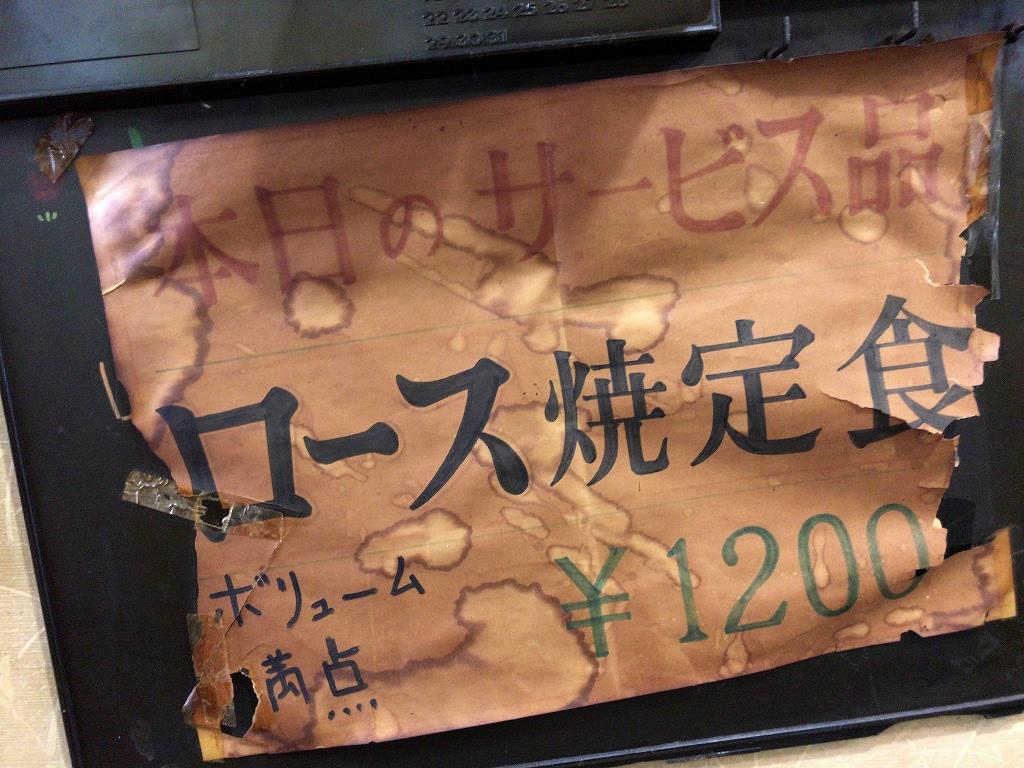 22 23 24 25 26 27 28
29 30 31
本日のサービス品
ロース焼定食
ボリューム
満点
¥1200